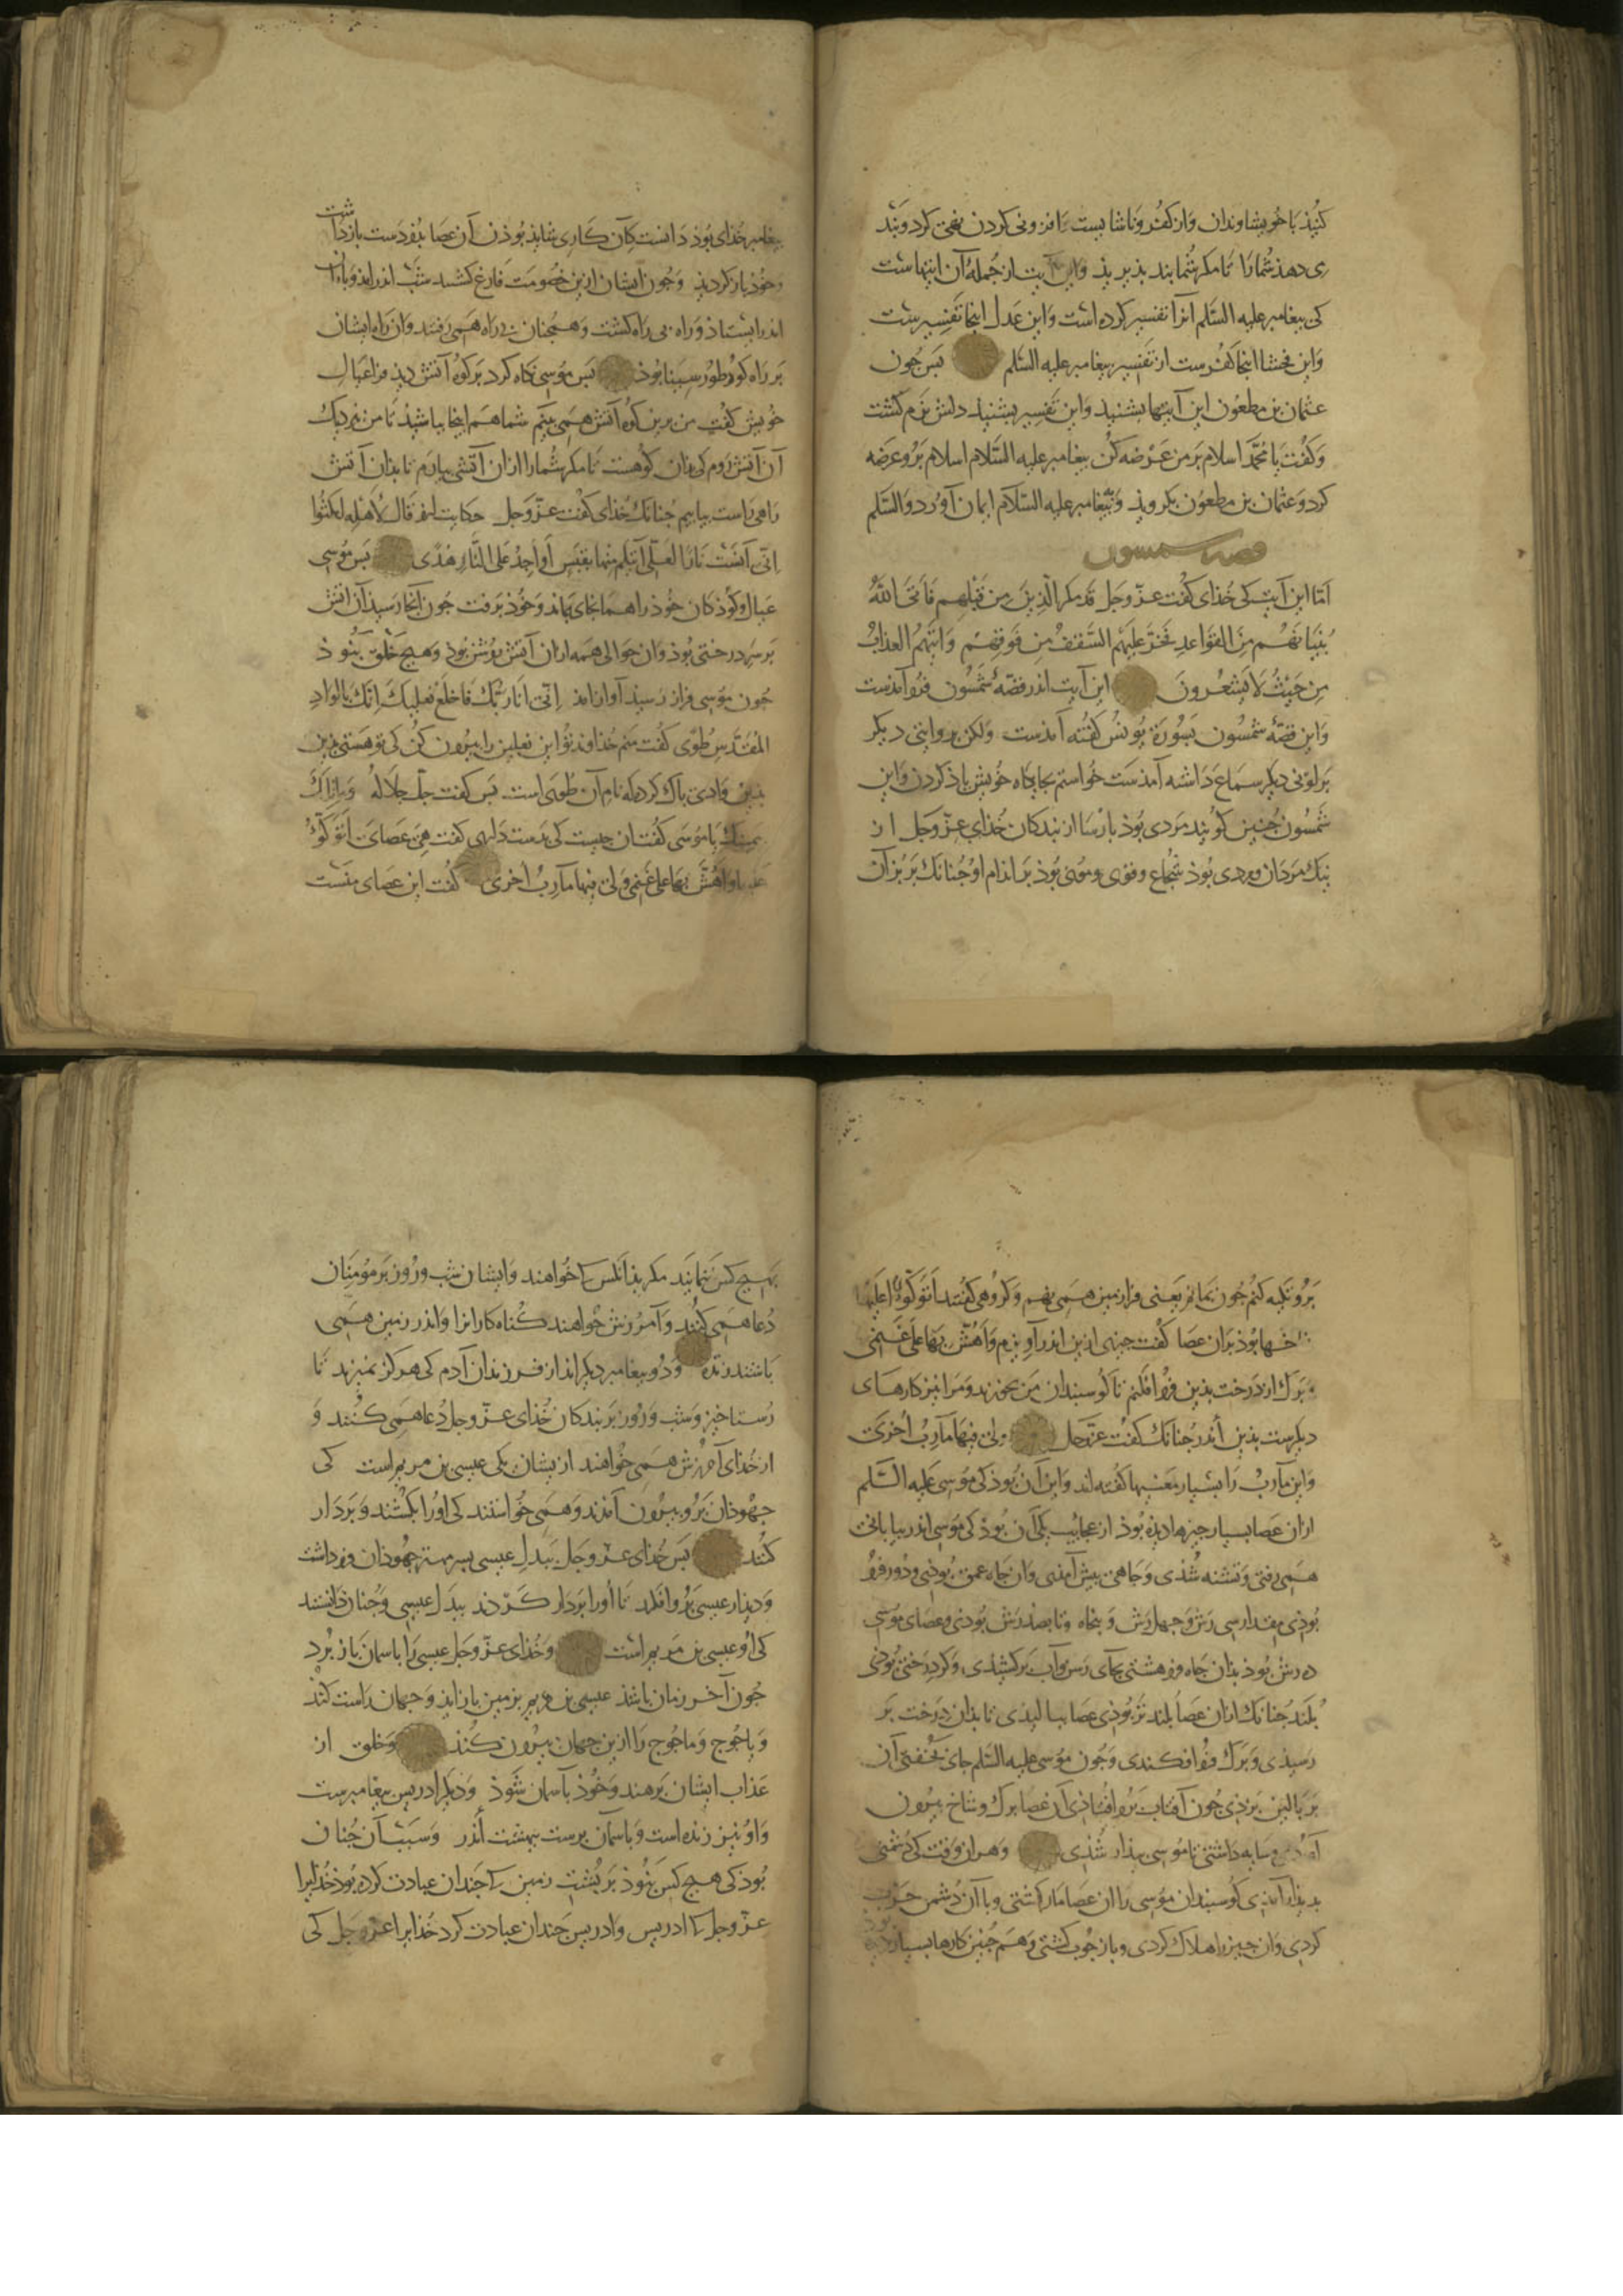 کنید با خویشاوندان وَاز کفُر وَناشایست وَافزونی کردن نهی کرد وَپند
می دهذ شُمارا تا مکر شُما بند بذیریذ وَاین آیت از جُملهٔ آن ایتهاست
کی پیغامبر علیه السَّلم آنرا تفسیر کرده است وَاین عَدل اینجا تَفسِیرست
وَاین فحشا اینجا کفُرست از تَفسِیر پیغامبر علیه السَّلم بَس جُون
عثمان بن مطعُون این آیتها بشنیذ وَاین تَفسِیر بشنیذ دلش نَرم کشت
وَ کفُت یا مُحَمَّد اسلام بَر من عَرضَه کُن پیغامبر علیه السَّلام اسلام بَرو عَرضَه
کرد وَعثمان بن مطعُون بکرویذ وَبپیغامبر علیه السَّلام ایمان آورد وَالسَّلم
قصهٔ شمسون
اَمّا این آیت کی خُذای کفُت عزّ وجل قَد مَکَرَ الَّذِینَ مِن قَبْلِهِم فَاَتَی اللهُ
بُنْیَانَهُم مِنَ القَوَاعِدِ فَخَرَّ عَلَیْهِمُ السَّقفُ مِن فَوقِهِم وَاَتَیهُمُ العذابُ
مِن حَیْثُ لَا یَشعُرونَ این آیت اندر قصّهٔ شَمسُون فرُو آمذست
وَاین قصّهٔ شمسُون بسُورة یُونسُ کفُته آمذست وَلکن بروایتی دیکر
بَر لونی دیکر سماع دَاشته آمذست خُواستم بجایکاه خُویش یاذ کردن وَاین
شَمسُون جُنین کویند مَردی بُوذ بارسا از بندکان خُذای عزّ وجل از
نیک مَردان و مردی بُوذ شُجاع وقوی و مُوئی بُوذ بَر اندام او جُنانک بَر بُز آن
پیغامبر خُذای بُوذ دَانست کآن کاری شایذ بُوذن آن عصا بیُفردَست باز داشت
وخُوذ باز کردیذ وَجُون ایشان ازین خصُومت فَارغ کشتند شَب اندر امذ وَباران
اندر ایستاذ وَراه بی رَاه کشت وَهمچُنان در راه هَمی رَفتند وَان رَاه ایشان
بَر رَاه کوه طوُر سِینا بُوذ بَس مُوسی نکاه کرد بَر کُوه آتش دیذ مَر اعیال
خُویش کفُت من برین کوه آتش همی بینم شما هَم اینجا بباشیذُ تا من نزدیک
آن آتش رَوم کی بران کوهست تا مکر شُمارا ازان آتشی بیارَم تا بذان آتش
راهی رَاست بیابیم جُنانک خُذای کفُت عزّ وجل حکایت ازو قَالَ لِاَهلِهِ امکثُوا
اِنّی آنَسْتُ نَارًا لَعَلّی آتِیکُم مِنها بِقَبَسٍ اَو اَجِدُ عَلَی النَّارِ هُدًی بَس مُوسی
عیال وکوُذکان خُوذ را همانجای بماند وَخُوذ بَرفت جُون آنجا رَسیذ آن آتش
بَر سَر درختی بُوذ وَان حَوالی همه ازان آتش رُوشن بُوذ وَهیچ خَلق نَبُوذ
جُون مُوسی فراز رَسیذ آواز امذ اِنّی اَنَا رَبُّکَ فَاخلَع نَعلَیکَ اِنَّکَ بِالوَادِ
المُقَدَّسِ طُوًی کفُت منم خُذاوَند تُو این نعلین را بیرون کن کی تو هَستی بزین
بذین وَادی پاک کرده که نام آن طُوی است بس کفت جلّ جلَاله وَمَا تِلکَ
بیَمینِکَ یا مُوسَی کفُت ان جیست کی بدَست دَاری کفت هِیَ عَصَایَ اَتَوَکَّؤُ
عَلَیها وَ اَهُشُّ بِهَا عَلَی غَنَمِی وَلِیَ فِیها مَآرِبُ اُخرَی کفت این عصای منست
بَرُو تکیه کنُم جُون بمانم یعنی فرا زمین همی نهم وَکروهی کفُتند اَتَوَکَّؤُا عَلَیها
شاخها بُوذ بَران عصا کفُت جیزی ازین اندر آویزم وَاَهُشُّ بِهَا عَلَی غَنَمِی
وبَرک از دَرخت بذین فرُو افکنم تا کوسبندان من بخورند وَمَرا نیز کارهای
دیکرست بذین اندر جُنانک کفت عزّ وجل وَلِیَ فِیهَا مَآرِبُ اُخرَی
وَاین مآربُ رَا بسیار معنیها کفُته اند وَاین آن بُوذ کی مُوسی عَلیه السَّلم
ازان عَصا بسیار جیزها دیذه بُوذ از عجایب یکی آن بُوذ کی مُوسی اندر بیابانی
هَمی رفتی وَتشنه شُذی وَجاهی بیش آمذی وَان جَاه عمق بُوذی وَدُور فرُو
بُوذی مقدار سی رَش وَجهل رَش وَپنجاه وتا بصد رَش بُوذی وعصای مُوسی
ده رَش بُوذ بذان جَاه فرو هشتی بجای رَسن وآب بَرکشیذی وَکر دِرَختی بُوذی
بُلند جُنانک ازان عصا بُلند تر بُوذی عصا ببالیذی تا بذان دِرَخت بَر
رسیذی وَبَرک فرُو افکندی وَجُون مُوسی علیه السَّلم جای بخُفتی آن
بَر بالین بزدی جُون آفتاب بَرُو افتاذی آن عَصا بَرک وشاخ بیرون
آوردی وسایه دَاشتی تا مُوسی بیدار شُذی وَهر ان وَقت کی دُشمنی
بدیدار آمذی کوسبندان مُوسی را ان عصا مار کشتی وبا آن دُشمن حَرب
کردی وَان جیز را هلاک کردی وباز جُوب کشتی وَهَم جُنین کارها بسیار بُوذ
بَهیج کس ننمایند مکر بذانکس کی خُواهند وَایشان شب ورُوز بَر مُومِنَان
دُعا همی کنُند وَآمُرزش خُواهند کُناه کارانرا وَاندر زمین همی
باشند زنده وَدُو پیغامبر دیکراند از فرزندان آدم کی هرکز نمیرند تا
رُستاخیز وَشب وَروُز بَر بندکان خُذای عزّ وجل دُعا همی کنُند وَ
از خُذای آمرزش همی خُواهند ازیشان یکی عیسی بن مریم است کی
جهُوذان بَرُو بیرُون آمَدند وَهمی خُواستند کی اورا بکشند وَبَردَار
کنند بَس خُذای عزّ وجل ببدل عیسی بسر مهتر جهُوذان فرو داشت
وَدیذار عیسی بَرو افکند تا اورا بَردَار کردند ببدل عیسی وَجُنان دانستند
کی او عیسی بن مَریم است وَخُذای عزّ وجل عیسی رَا باسمان باز بُرد
جُون آخر زمان باشذ عیسی بن مریم بزمین باز ایذ وَجهان رَاست کند
وَیاجُوج وَماجُوج رَا ازین جهان بیرُون کنُند وَخلق از
عذاب ایشان بَرهند وَخوُذ بآسمان شَوذ وَدیکر ادریس پیغامبرست
وَاو نیز زنده است وَباسمان برست ببهشت اُندر وَسَبب آن جُنان
بُوذ کی هیچ کس نبُوذ بَر پُشت زمین کی جَندان عبادت کرده بُوذ خُذایرا
عزّ وجل کی ادریس وادریس جَندان عبادت کرد خُذایرا عزّ وجل کی